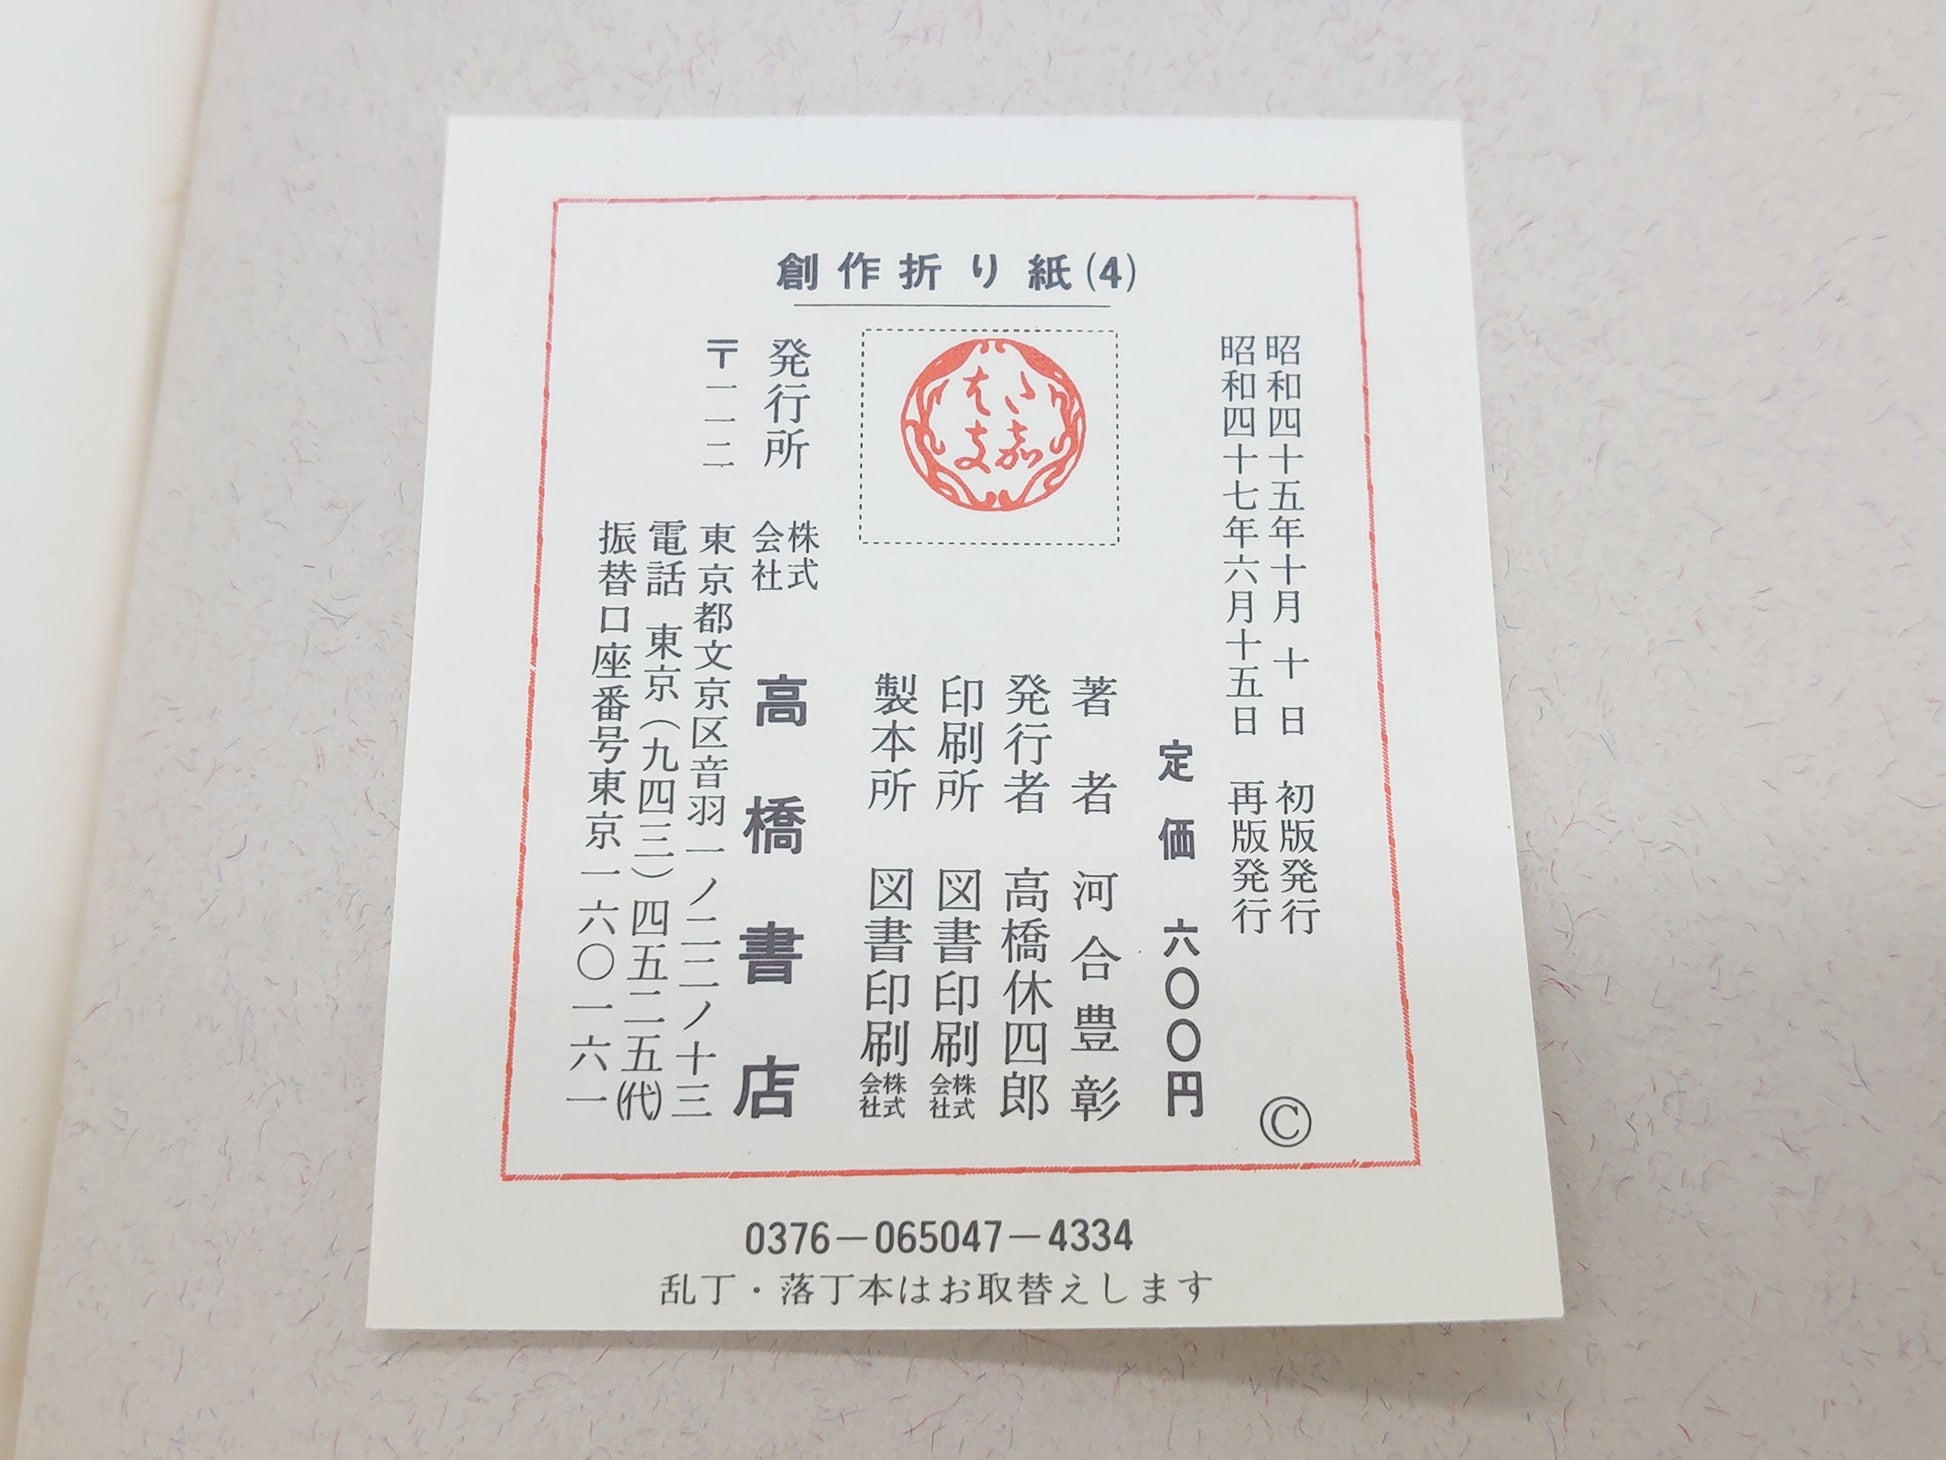 創作折り紙(4)
昭和四十五年十月十日 初版発行
昭和四十七年六月十五日 再版発行
Ⓒ
定価 六〇〇円
著者 河合豊彰
発行者 高橋休四郎
印刷所 図書印刷株式会社
製本所 図書印刷株式会社
発行所 株式会社 高橋書店
〒一一二 東京都文京区音羽一ノ二二ノ十三
電話 東京(九四三)四五二五(代)
振替口座番号東京一六〇一六一
0376-065047-4334
乱丁・落丁本はお取替えします